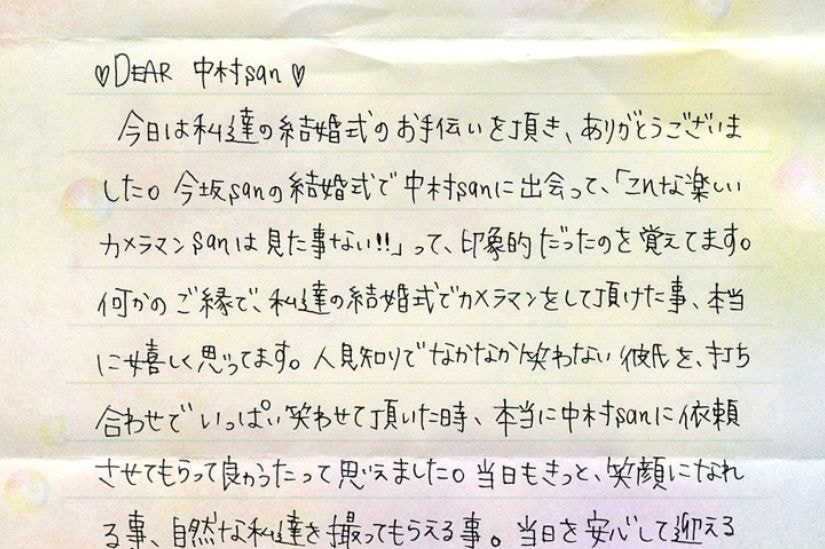 ♡DEAR 中村san♡
今日は私達の結婚式のお手伝いを頂き、ありがとうございま
した。今坂sanの結婚式で中村sanに出会って、「こんな楽しい
カメラマンsanは見た事ない!!」って、印象的だったのを覚えてます。
何かのご縁で、私達の結婚式でカメラマンをして頂けた事、本当
に嬉しく思ってます。人見知りでなかなか笑わない彼氏を、打ち
合わせでいっぱい笑わせて頂いた時、本当に中村sanに依頼
させてもらって良かったって思えました。当日もきっと、笑顔になれ
る事、自然な私達を撮ってもらえる事。当日を安心して迎える